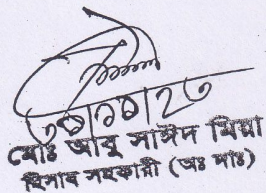 ৩১/১১/২৩
মোঃ আবু সাঈদ মিয়া
হিসাব সহকারী (অঃ দাঃ)